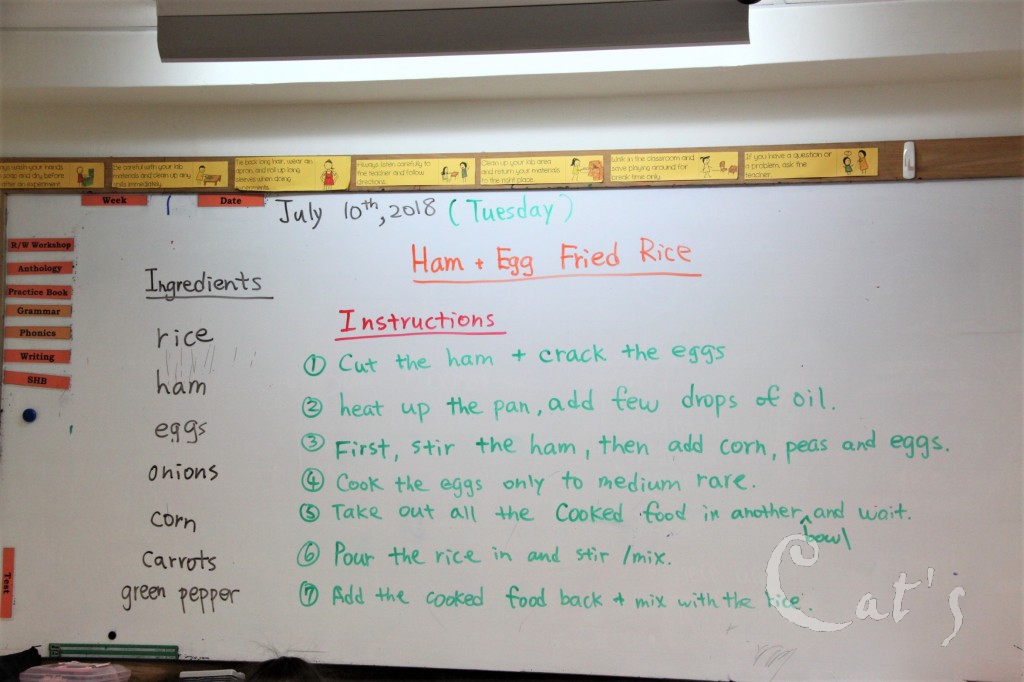 always wash your hands
soap and dry before
after an experiment
Be careful with your lab
materials and clean up any
spills immediately
Tie back long hair, wear an
apron, and roll up long
sleeves when doing
experiments
Always listen carefully to
the teacher and follow
directions
Clean up your lab area
and return your materials
to the right place
Walk in the classroom and
save playing around for
break time only
If you have a question or
a problem, ask the
teacher
Week
Date
July 10th, 2018 (Tuesday)
Ham + Egg Fried Rice
R/W Workshop
Anthology
Practice Book
Grammar
Phonics
Writing
SHB
Test
Ingredients
rice
ham
eggs
onions
corn
carrots
green pepper
Instructions
① Cut the ham + crack the eggs
② heat up the pan, add few drops of oil.
③ First, stir the ham, then add corn, peas and eggs.
④ Cook the eggs only to medium rare.
⑤ Take out all the cooked food in another ^ and wait.
bowl
⑥ Pour the rice in and stir /mix.
⑦ Add the cooked food back + mix with the rice.
Cat's